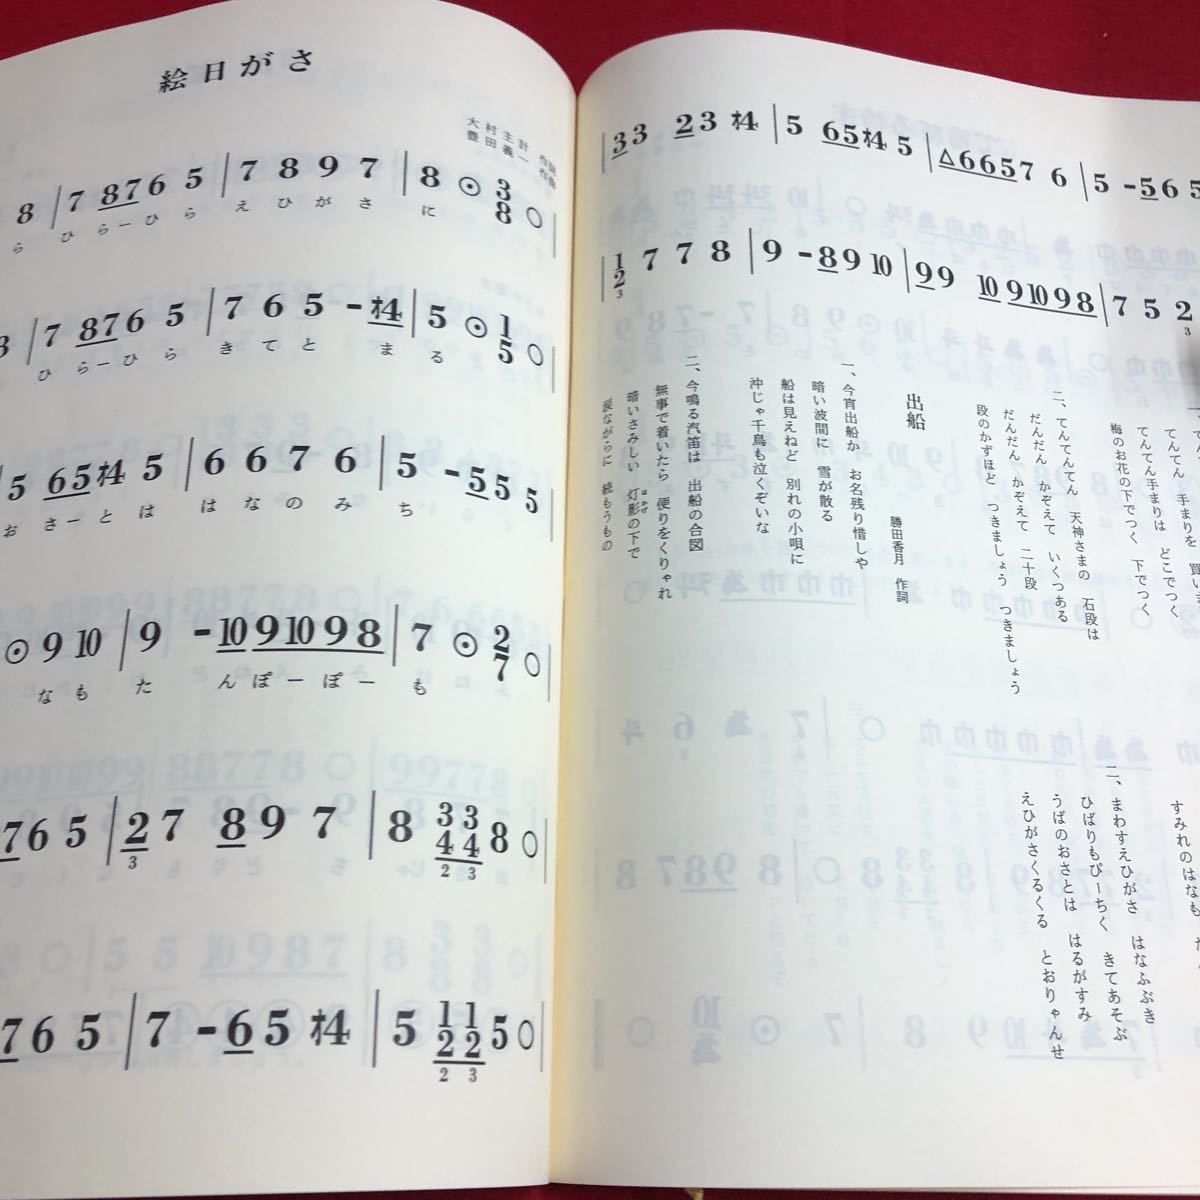 絵日がさ
大村主計 作詞
豊田義一 作曲
8 | 7 8 7 6 5 | 7 8 9 7 | 8 ⊙ 3 8 ○ |
ら ひ らーひ ら え ひ が さ に
3 | 7 8 7 6 5 | 7 6 5 - ｵ4 | 5 ⊙ 1 5 ○ |
ひ らーひ ら き て と ま る
5 6 5 ｵ4 5 | 6 6 7 6 | 5 - 5 5 5
お さーと は は な の み ち
⊙ 9 10 | 9 - 10 9 10 9 8 | 7 ⊙ 2 7 ○
な も た ん ぽ ー ぽ ー も
7 6 5 | 2 7 8 9 7 | 8 3 3 8 ○ |
3 4 4
2 3
7 6 5 | 7 - 6 5 ｵ4 | 5 1 1 5 ○ |
2 2
2 3
| 3 3 2 3 ｵ4 | 5 6 5 ｵ4 5 | △ 6 6 5 7 6 | 5 - 5 6 5
| 1 7 7 8 | 9 - 8 9 10 | 9 9 10 9 10 9 8 | 7 5 2
2
3 3
てんてん 手まりを
てんてん手まりは どこでつく
梅のお花の下でつく 下でつく
二、てんてんてん 天神さまの 石段は
だんだん かぞえて いくつある
だんだん かぞえて 二十段
段のかずほど つきましょう つきましょう
出船
勝田香月 作詞
一、今宵出船か お名残り惜しや
暗い波間に 雪が散る
船は見えねど 別れの小唄に
沖じゃ千鳥も泣くぞいな
二、今鳴る汽笛は 出船の合図
無事で着いたら 便りをくりゃれ
暗いさみしい 灯影の下で
ほかげ
涙ながらに 読もうもの
すみれのはなも
二、まわすえひがさ はなふぶき
ひばりもぴーちく きてあそぶ
うばのおさとは はるがすみ
えひがさくるくる とおりゃんせ